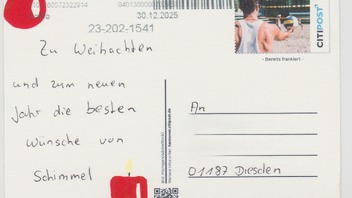 30.12.2025
23-202-1541
CITIPOST
- Bereits frankiert -
Zu Weihachten
und zum neuen
Jahr die besten
Wünsche von
Schimmel
An
01187 Dresden